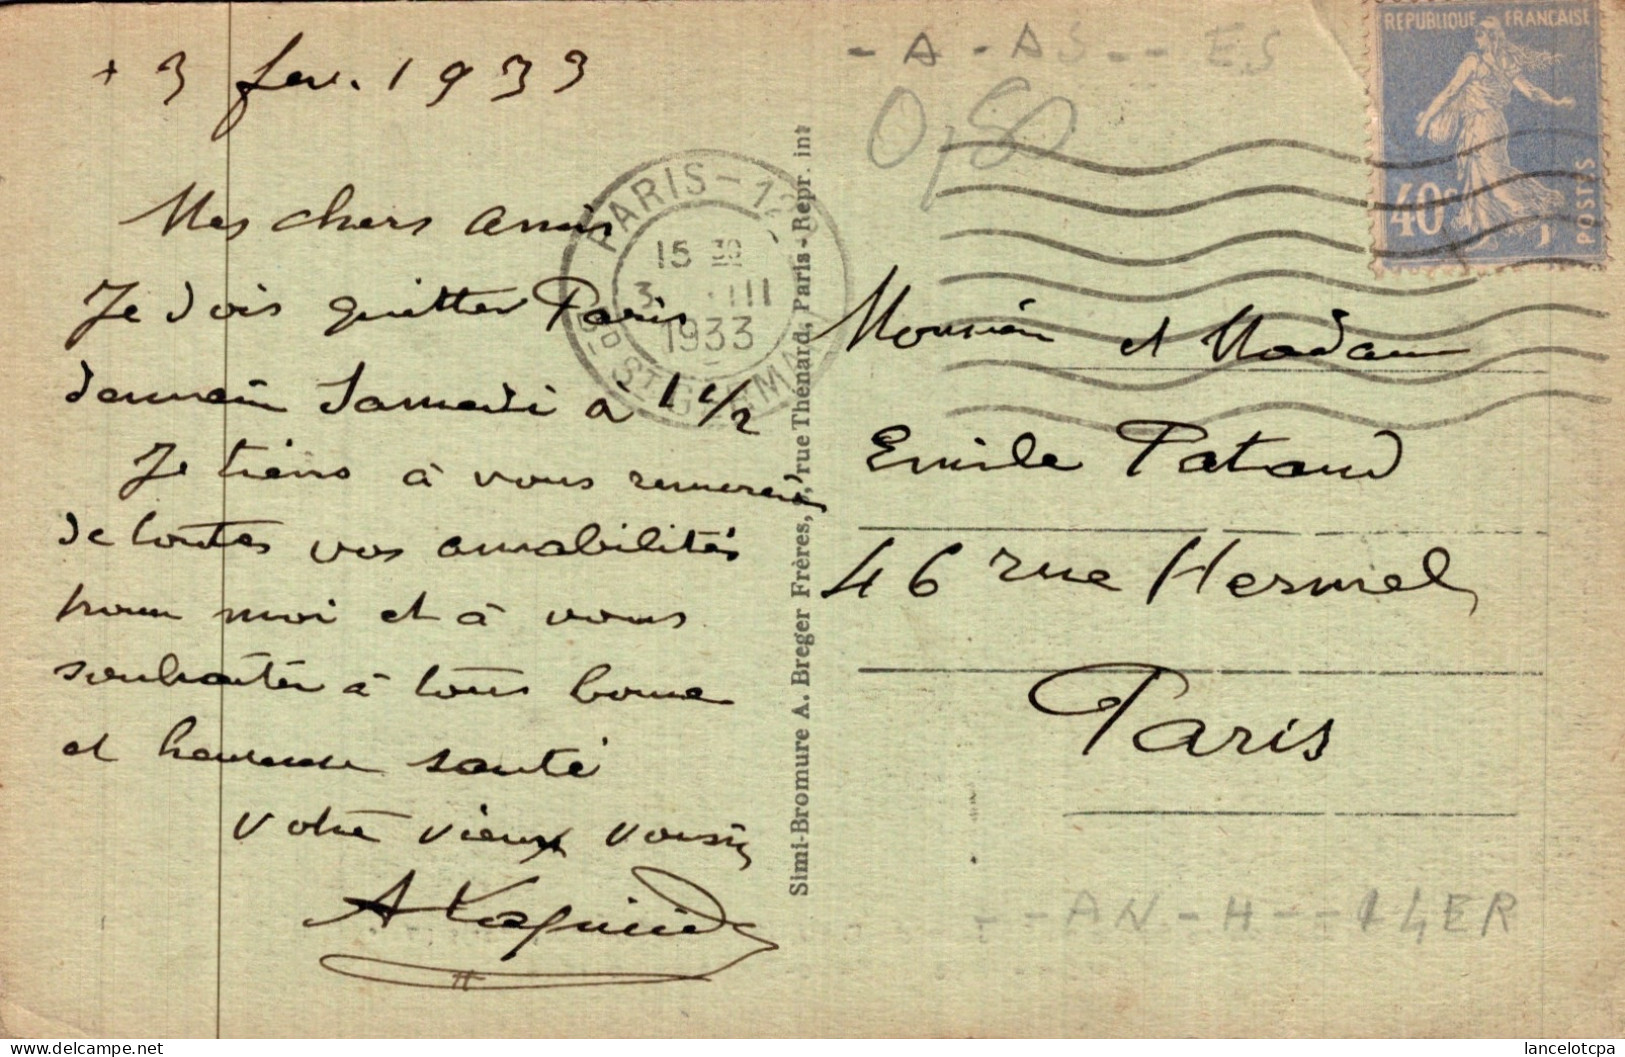 + 3 fev. 1933
Mes chers amis
Je dois quitter Paris
demain Samedi à 1 1/2
Je tiens à vous remercier
de toutes vos amabilités
pour moi et à vous
souhaiter à tous bonne
et heureuse santé
Votre vieux voisin
A
- A - AS - - ES
0,50
REPUBLIQUE FRANÇAISE
40c
POSTES
PARIS - 12
15
3 III
1933
BD ST GERMAIN
Simi-Bromure A. Breger Frères, rue Thénard, Paris - Repr. int
Monsieur et Madame
Emile Pataud
46 rue Hermel
Paris
- - AN - H - - 14ER
lancelotcpa